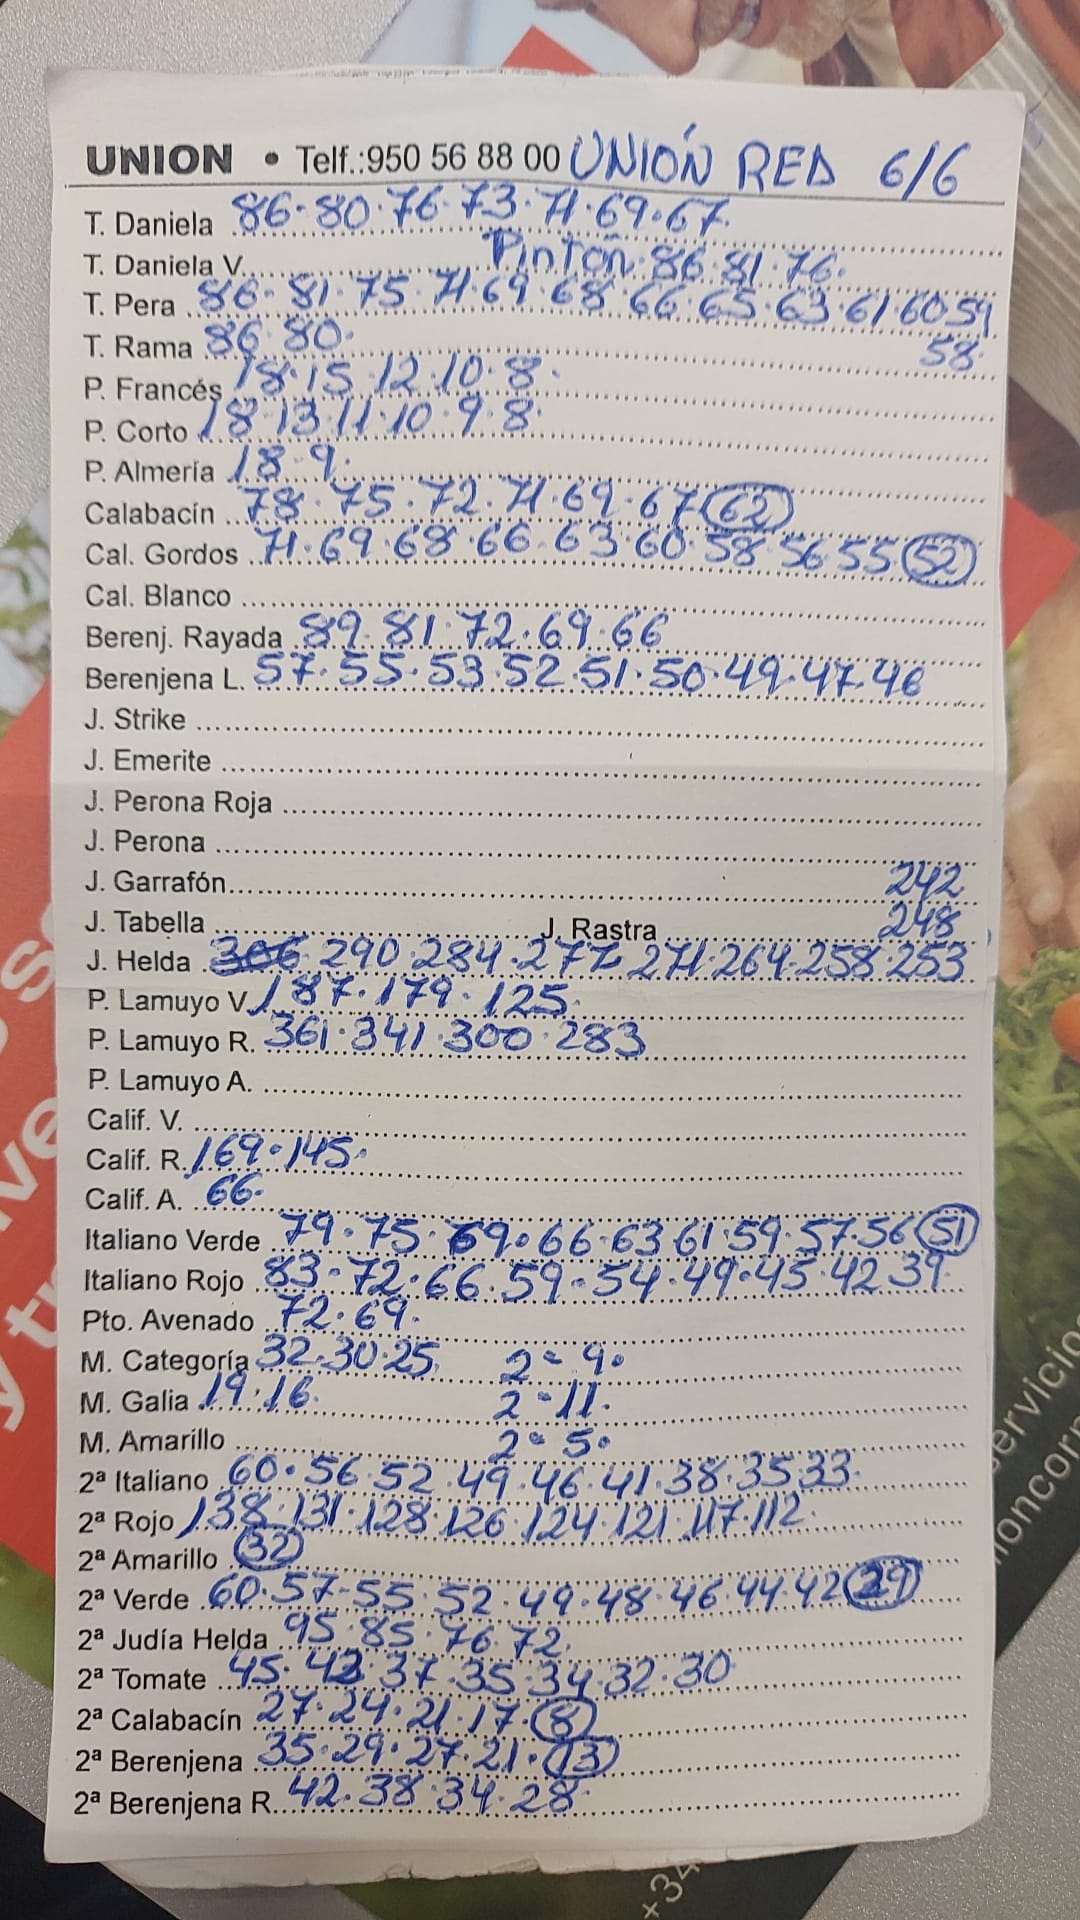 UNION • Telf.:950 56 88 00 UNIÓN RED 6/6
T. Daniela 86·80·76·73·71·69·67·
T. Daniela V. Pintón·86·81·76·
T. Pera 86·81·75·71·69·68·66·65·63·61·60·59
58·
T. Rama 86·80·
P. Francés 18·15·12·10·8·
P. Corto 18·13·11·10·9·8·
P. Almería 18·9·
Calabacín 78·75·72·71·69·67 62
Cal. Gordos 71·69·68·66·63·60·58 56 55 52
Cal. Blanco
Berenj. Rayada 89·81·72·69·66
Berenjena L. 57·55·53·52·51·50·49·47·46
J. Strike
J. Emerite
J. Perona Roja
J. Perona
J. Garrafón 242
J. Tabella J. Rastra 248
J. Helda 306 290·284·277 271·264·258·253
P. Lamuyo V. 187·179·125·
P. Lamuyo R. 361·341·300·283
P. Lamuyo A.
Calif. V.
Calif. R. 169·145·
Calif. A. 66·
Italiano Verde 79·75·69·66·63 61·59·57·56 51
Italiano Rojo 83·72·66·59·54·49·45·42 39·
Pto. Avenado 72·69·
M. Categoría 32·30·25 2ª 9·
M. Galia 19·16· 2ª 11·
M. Amarillo 2ª 5·
2ª Italiano 60·56·52·49·46·41·38·35 33·
2ª Rojo 138·131·128·126·124·121·117·112·
2ª Amarillo 32
2ª Verde 60·57·55·52·49·48·46·44·42 29
2ª Judía Helda 95·85·76·72·
2ª Tomate 45·42·37·35·34·32·30
2ª Calabacín 27·24·21·17·8
2ª Berenjena 35·29·27·21·13
2ª Berenjena R. 42·38·34·28·
ervicio
ioncorp
+34